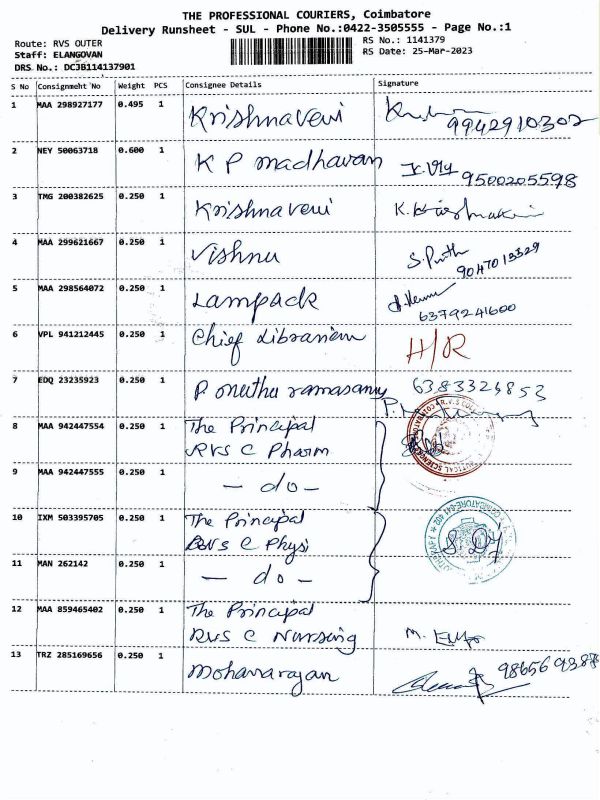 THE PROFESSIONAL COURIERS, Coimbatore
Delivery Runsheet - SUL - Phone No.:0422-3505555 - Page No.:1
Route: RVS OUTER
Staff: ELANGOVAN
DRS No.: DCJB114137901
RS No.: 1141379
RS Date: 25-Mar-2023
S No Consignment No Weight PCS Consignee Details Signature
1 MAA 298927177 0.495 1 Krishnaveni
9942910302
2 NEY 50063718 0.600 1 K P madhavan
9500205598
3 TMG 200382625 0.250 1 Krishnaveni
4 MAA 299621667 0.250 1 Vishnu
9047013329
5 MAA 298564072 0.250 1 Lampack
6379241600
6 VPL 941212445 0.250 1 Chief Librarian H/R
7 EDQ 23235923 0.250 1 P. muthu ramasamy 6383326853
8 MAA 942447554 0.250 1 The Principal
RVS C Pharm
9 MAA 942447555 0.250 1 - do -
10 IXM 503395705 0.250 1 The Principal
RVS C Physi
11 MAN 262142 0.250 1 - do -
12 MAA 859465402 0.250 1 The Principal
RVS C Nursing
13 TRZ 285169656 0.250 1 Mohanarajan